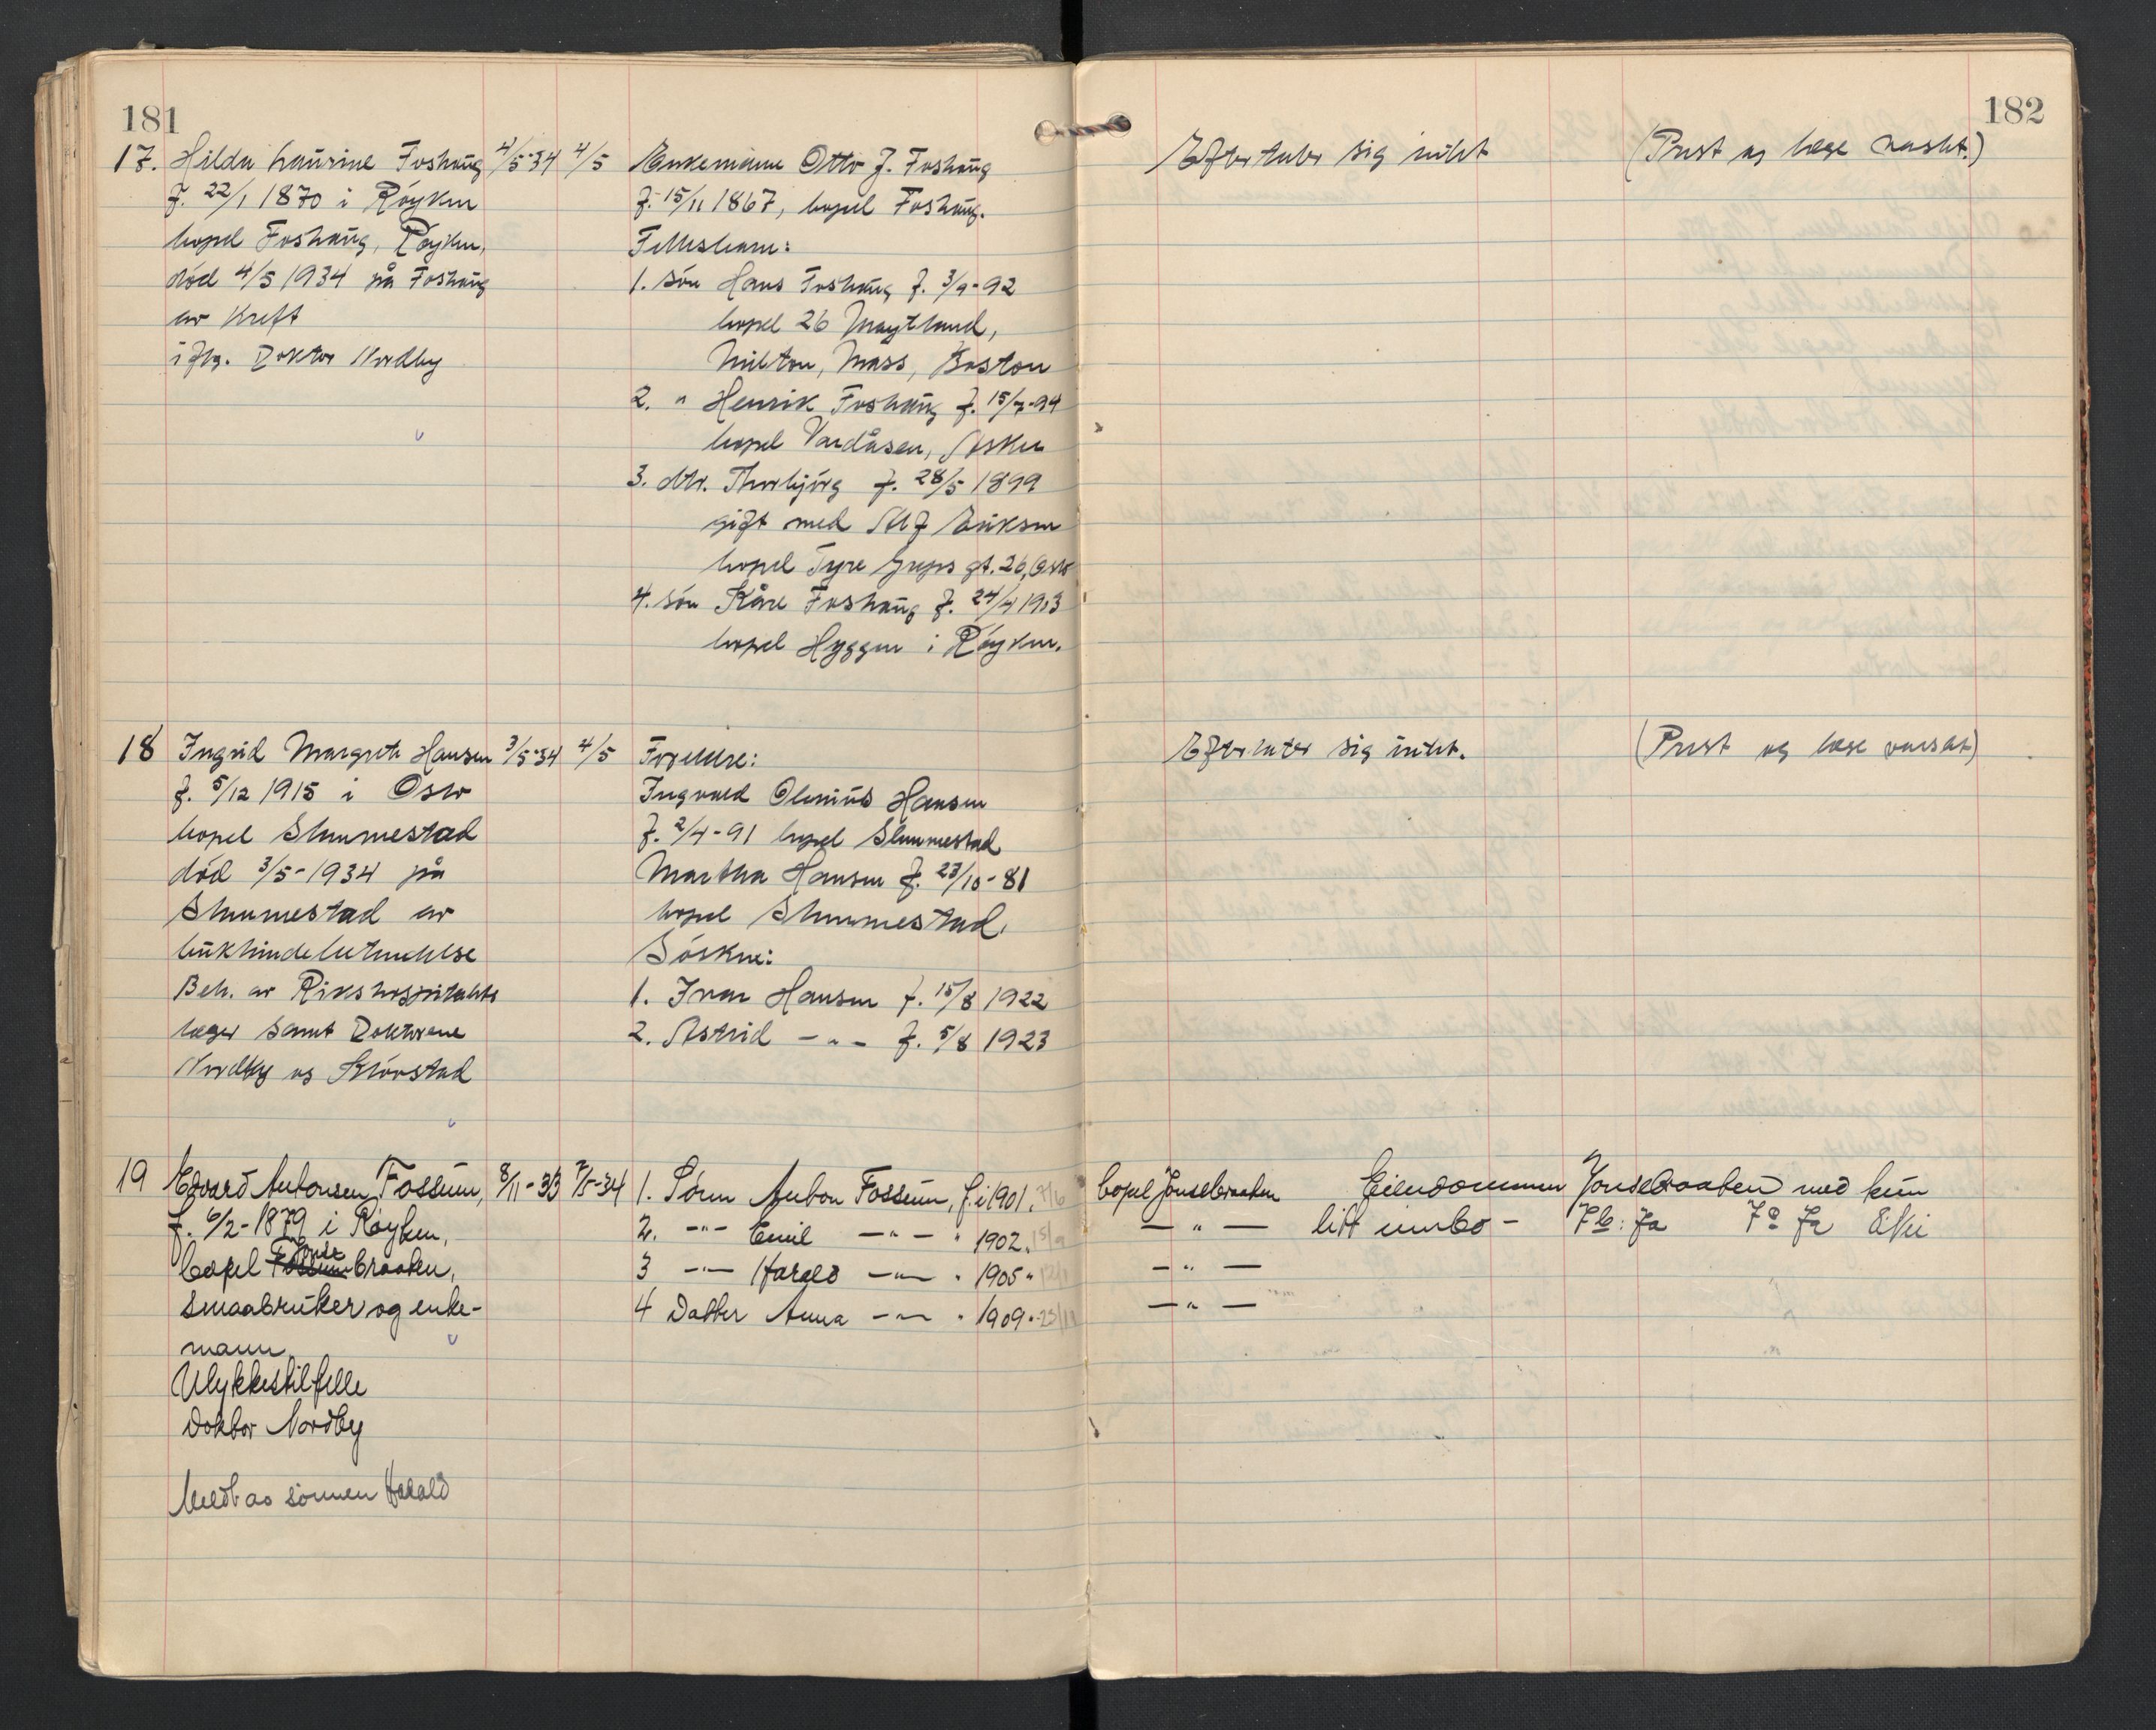 181
182
17. Hilda Laurine Foshaug 4/5-34 4/5
f. 22/1 1870 i Røyken
bopel Foshaug, Røyken,
død 4/5 1934 på Foshaug
av kreft
iflg. Doktor Nordby
Enkemann Otto J. Foshaug
f. 15/11 1867, bopel Foshaug.
Fellesbarn:
1. søn Hans Foshaug f. 3/9-92
bopel 26 Maytland,
Milton, Mass, Boston
2. " Henrik Foshaug f. 15/7-94
bopel Vardåsen, Asker
3. dtr. Thorbjørg f. 28/5 1899
gift med Alf Eriksen
bopel Tyre gt. 26, Oslo
4. søn Kåre Foshaug f. 24/4 1903
bopel Hyggen i Røyken.
Efterlater sig intet
(Prest og læge varslet.)
18 Ingrid Margrete Hansen 3/5-34 4/5
f. 5/12 1915 i Oslo
bopel Slemmestad
død 3/5-1934 på
Slemmestad av
bukhindebetendelse
Beh. av Rikshospitalets
læger samt Doktorene
Nordby og
Foreldre:
Ingvald Olenius Hansen
f. 2/4-91 bopel Slemmestad
Martha Hansen f. 23/10-81
bopel Slemmestad.
Søsken:
1. Ivar Hansen f. 15/8 1922
2. Astrid - " - f. 5/8 1923
Efterlater sig intet.
(Prest og læge varslet)
19 Edvard Antonsen Fossum, 8/11-33 7/5-34
f. 6/2-1879 i Røyken,
bopel Fossum Jonsebraaten,
smaabruker og enke-
mann
Ulykkestilfelle
Doktor Nordby
Meldt av sønnen Harald
1. Sønn Anton Fossum, f. i 1901. 7/6 bopel Jonsebraaten
2. -"- Emil -"- " 1902. 15/9 - " -
3 -"- Harald -"- " 1905 " - " -
4 Datter Anna -"- " 1909 " - " -
Eiendommen Jonsebraaten med kun
litt innbo - 7b: Ja 7c Ja 8: Nei